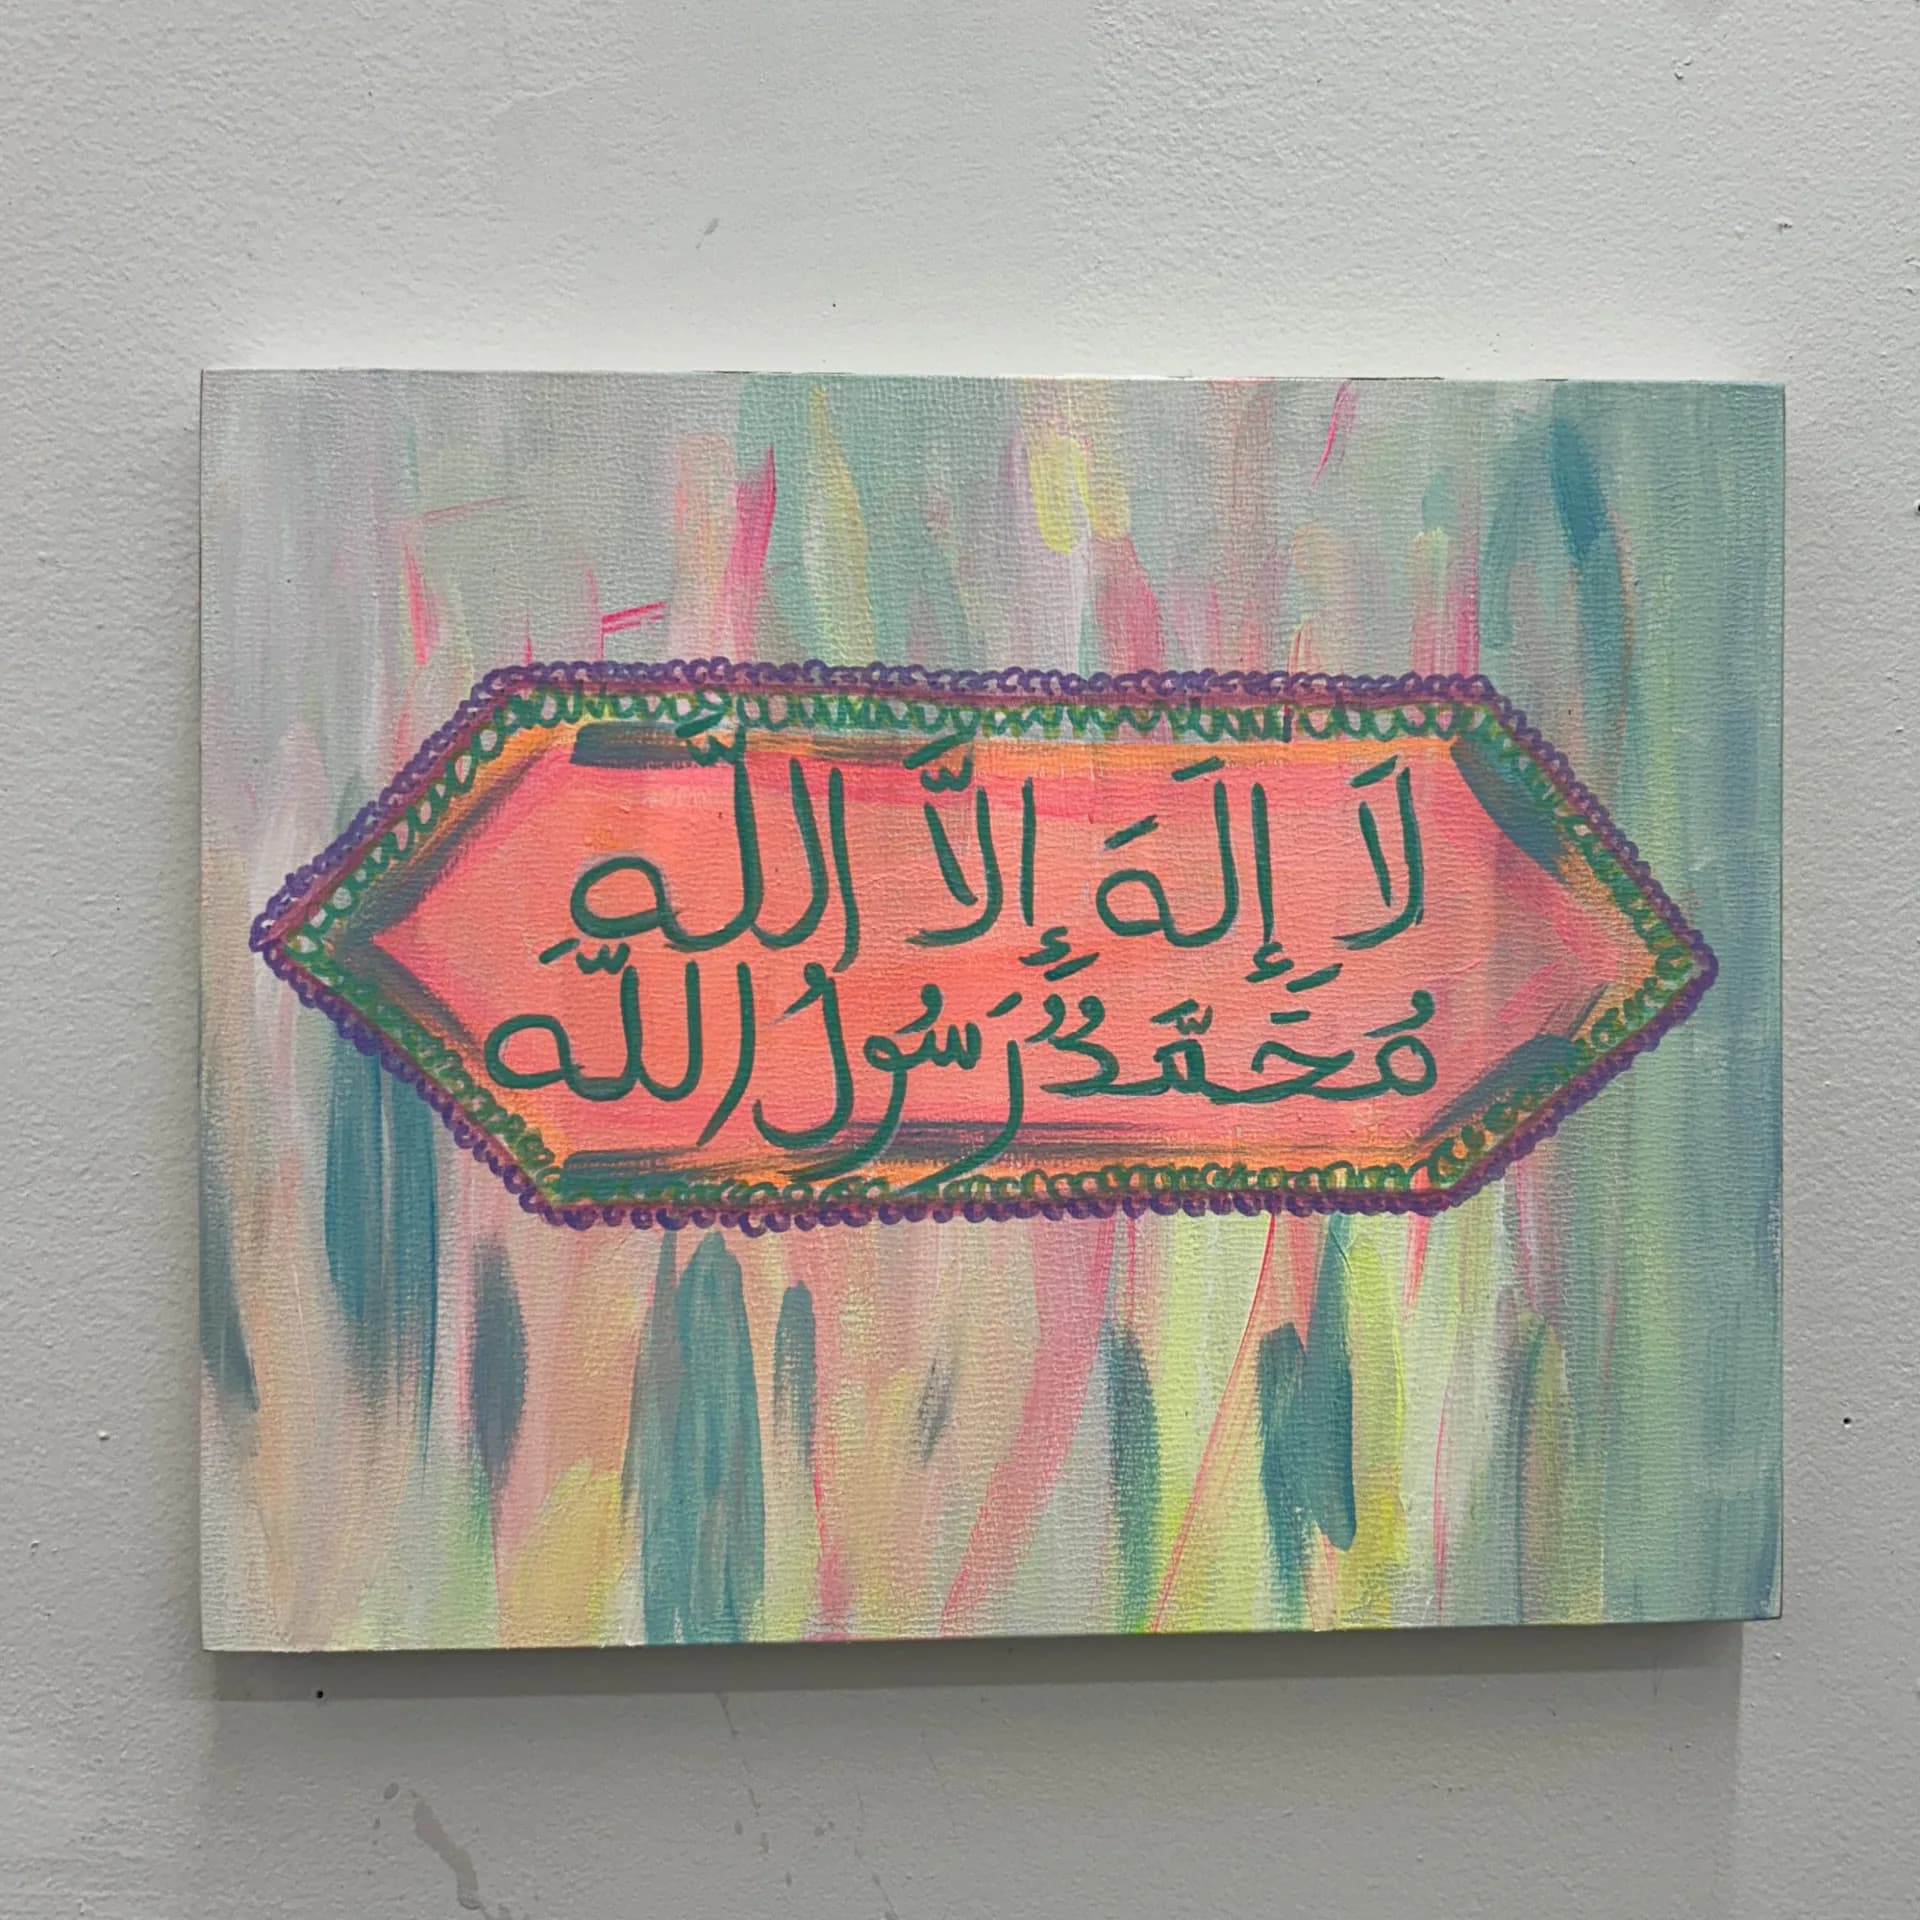 لَا إِلَهَ إِلَّا اللَّه
مُحَمَّدٌ رَسُولُ اللَّه